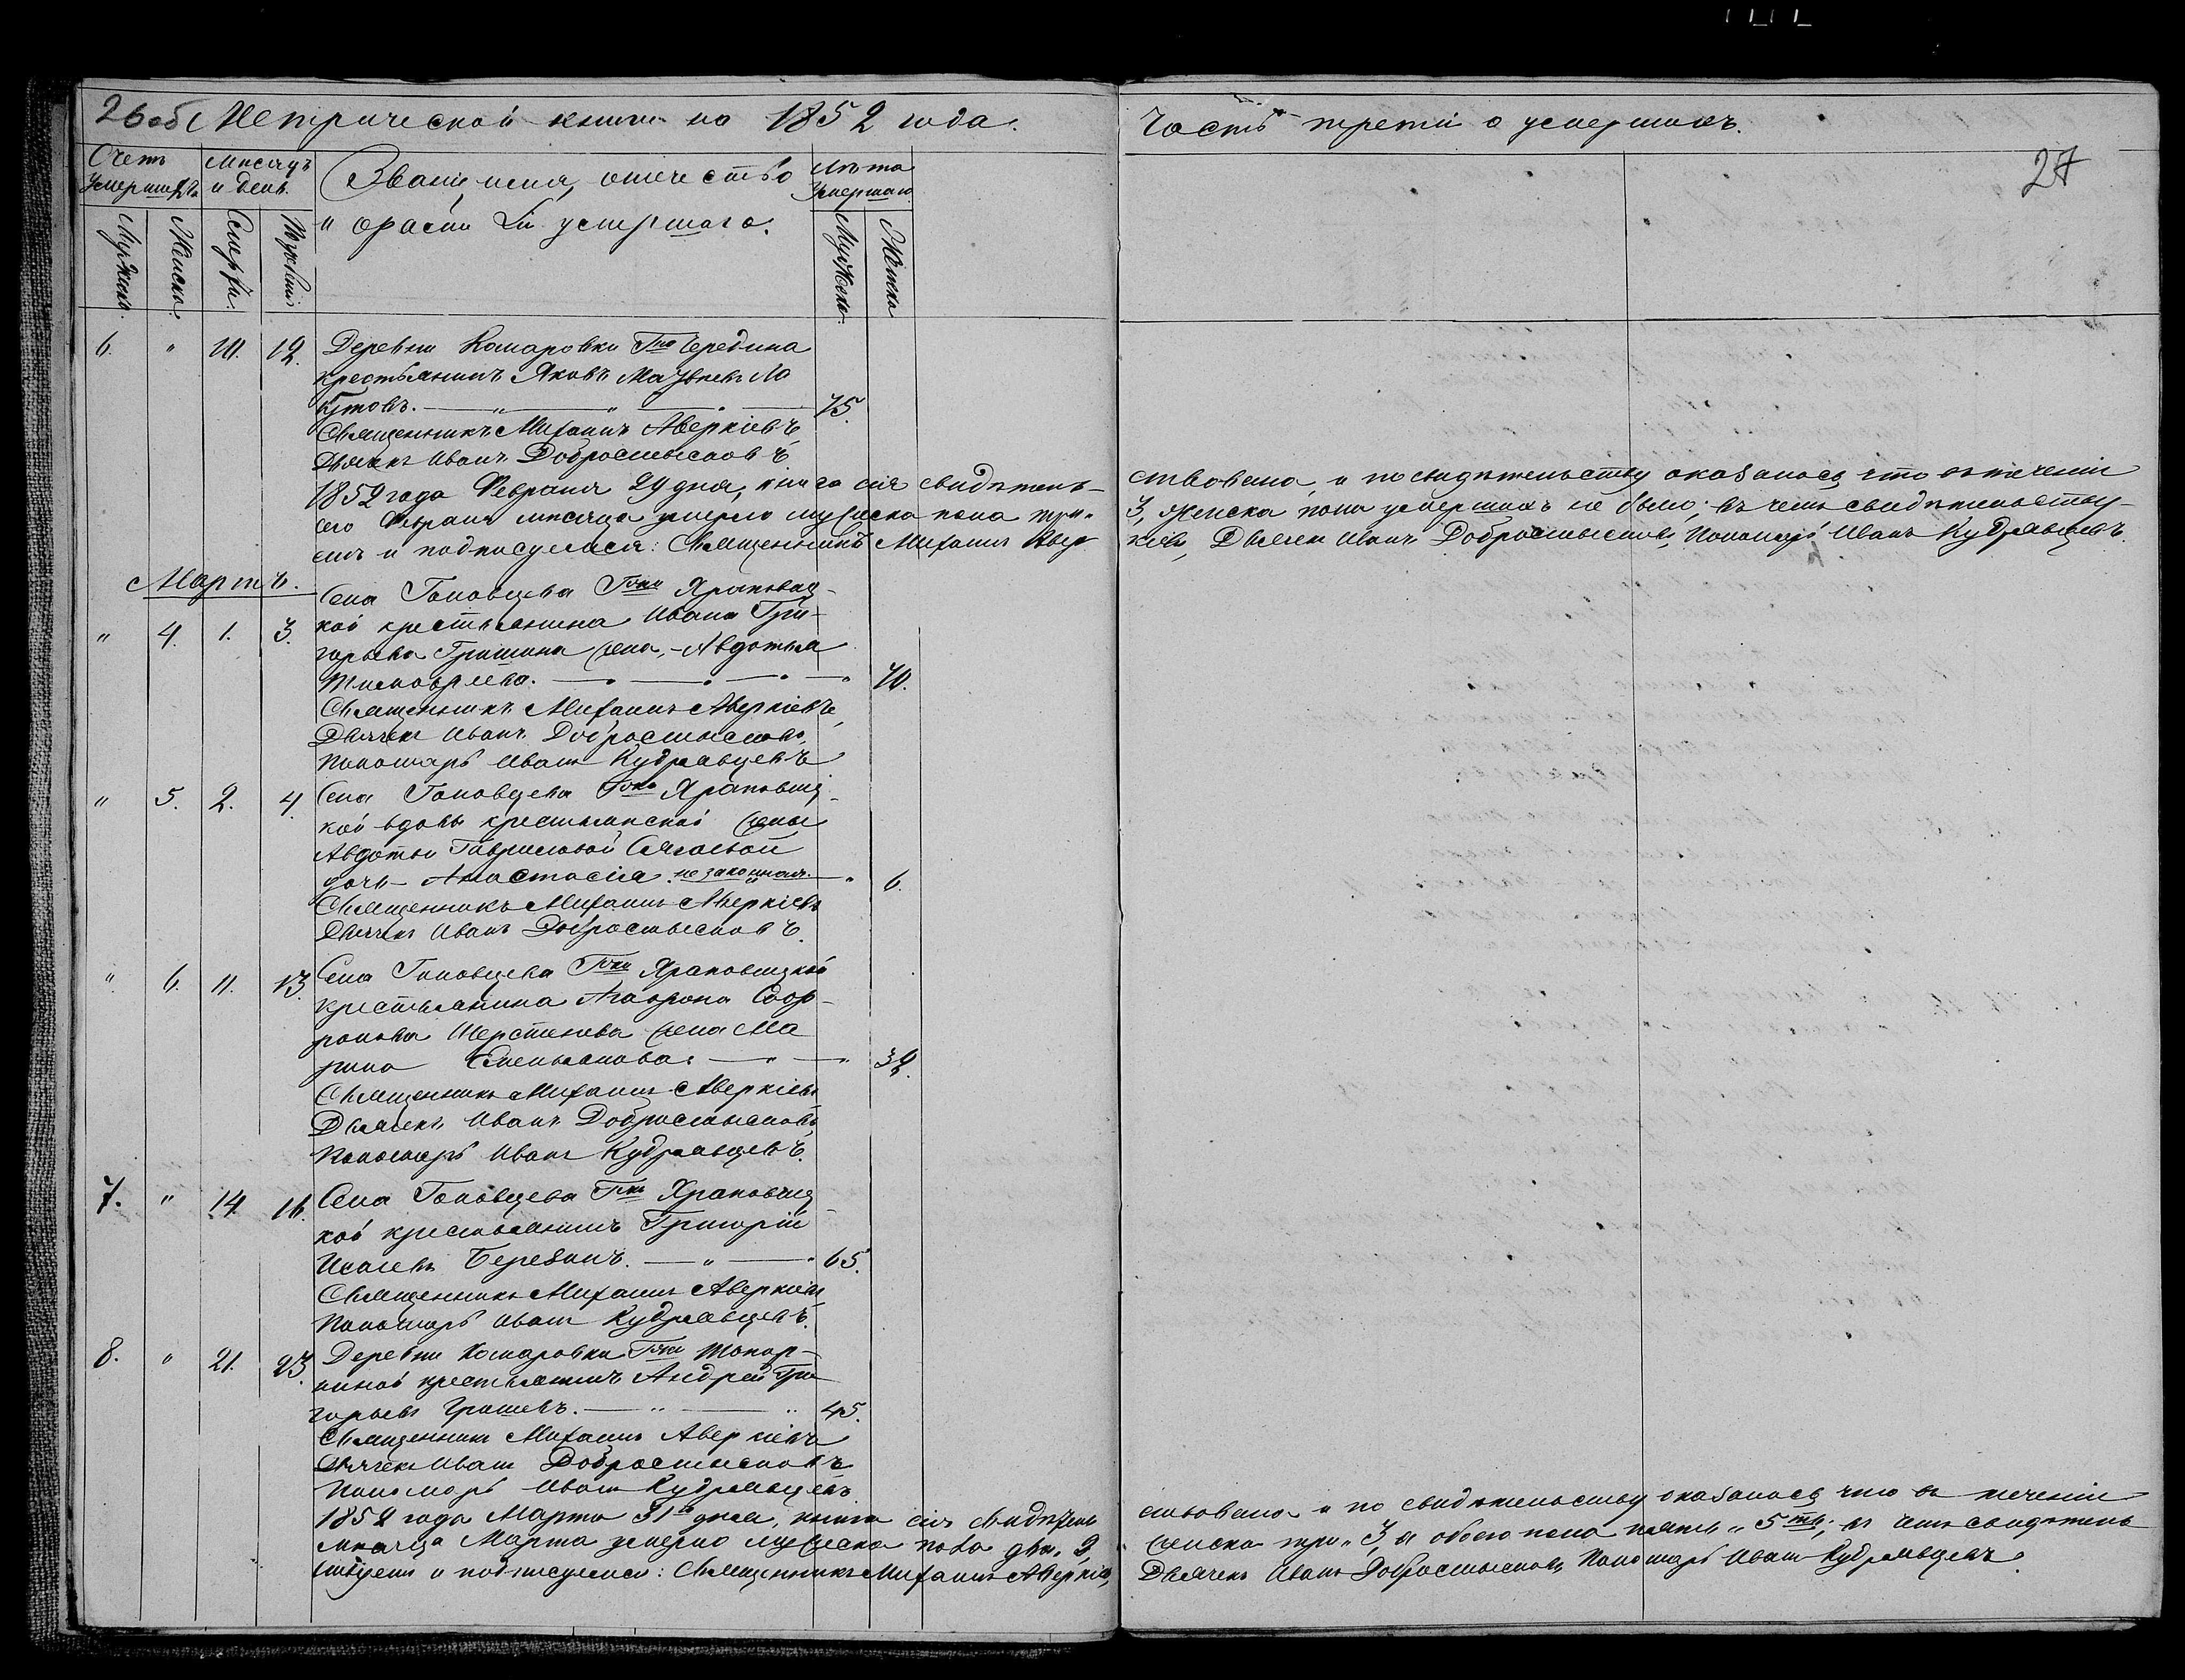 26об Метрической книги на 1852 года.
Часть третiя о умершихъ.
27
Счетъ умершихъ
Мѣсяцъ и день.
Званiе, имя, отечество
и фамилiя умершаго.
Лѣта умершаго.
Мужеска.
Женска.
Смерти.
Погребенiя
Мужеска.
Женска
6. " 10. 12. Деревни Комаровки Гна Чередина
крестьянинъ Яковъ Матвѣевъ
75.
Священникъ Михаилъ Аверкiевъ,
Дьячекъ Иванъ Добросмысловъ
1852 года Февраля 29 дня, книга сiя свидѣтель-
ствована, и по свидѣтельству оказалось что въ теченiи
сего Февраля мѣсяца умерло мужеска пола три.
3, женска пола умершихъ не было; въ чемъ свидѣтельству-
емъ и подписуемся: Священникъ Михаилъ Авер
кiевъ, Дьячекъ Иванъ Добросмысловъ, Пономарь Иванъ Кудрявцевъ.
Мартъ.
Села Головцева Гжи Храповиц-
" 4. 1. 3. кой крестьянина Ивана Гри-
горьева Гришина жена, Авдотья
70.
Священникъ Михаилъ Аверкiевъ,
Дьячекъ Иванъ Добросмысловъ,
Пономарь Иванъ Кудрявцевъ
" 5. 2. 4. Села Головцева Гжи Храповиц-
кой вдовы крестьянской жены
Авдотьи Гавриловой
дочь Анастасiя незаконная. " 6.
Священникъ Михаилъ Аверкiевъ
Дьячекъ Иванъ Добросмысловъ.
" 6. 11. 13. Села Головцева Гжи Храповицкой
крестьянина Агафона Софо-
ронова Шерстенева жена Ма
рина Емельянова. 32.
Священникъ Михаилъ Аверкiевъ
Дьячекъ Иванъ Добросмысловъ,
Пономарь Иванъ Кудрявцевъ.
7. " 14. 16. Села Головцева Гжи Храповиц-
кой крестьянинъ Григорiй
Исаевъ Березинъ. 65.
Священникъ Михаилъ Аверкiевъ
Пономарь Иванъ Кудрявцевъ.
8. " 21. 23. Деревни Комаровки Гжи Топор-
ниной крестьянинъ Андрей Гри
горьевъ Грошевъ. 45.
Священникъ Михаилъ Аверкiевъ
Дьячекъ Иванъ Добросмысловъ
Пономарь Иванъ Кудрявцевъ.
1852 года Марта 31го дня, книга сiя свидѣтель
ствована и по свидѣтельству оказалось что въ теченiи
мѣсяца Марта умерло мужеска пола два. 2,
женска три. 3, а обоего пола пять. 5ть; въ чемъ свидѣтель
ствуемъ и подписуемся: Священникъ Михаилъ Аверкiевъ,
Дьячекъ Иванъ Добросмысловъ, Пономарь Иванъ Кудрявцевъ.